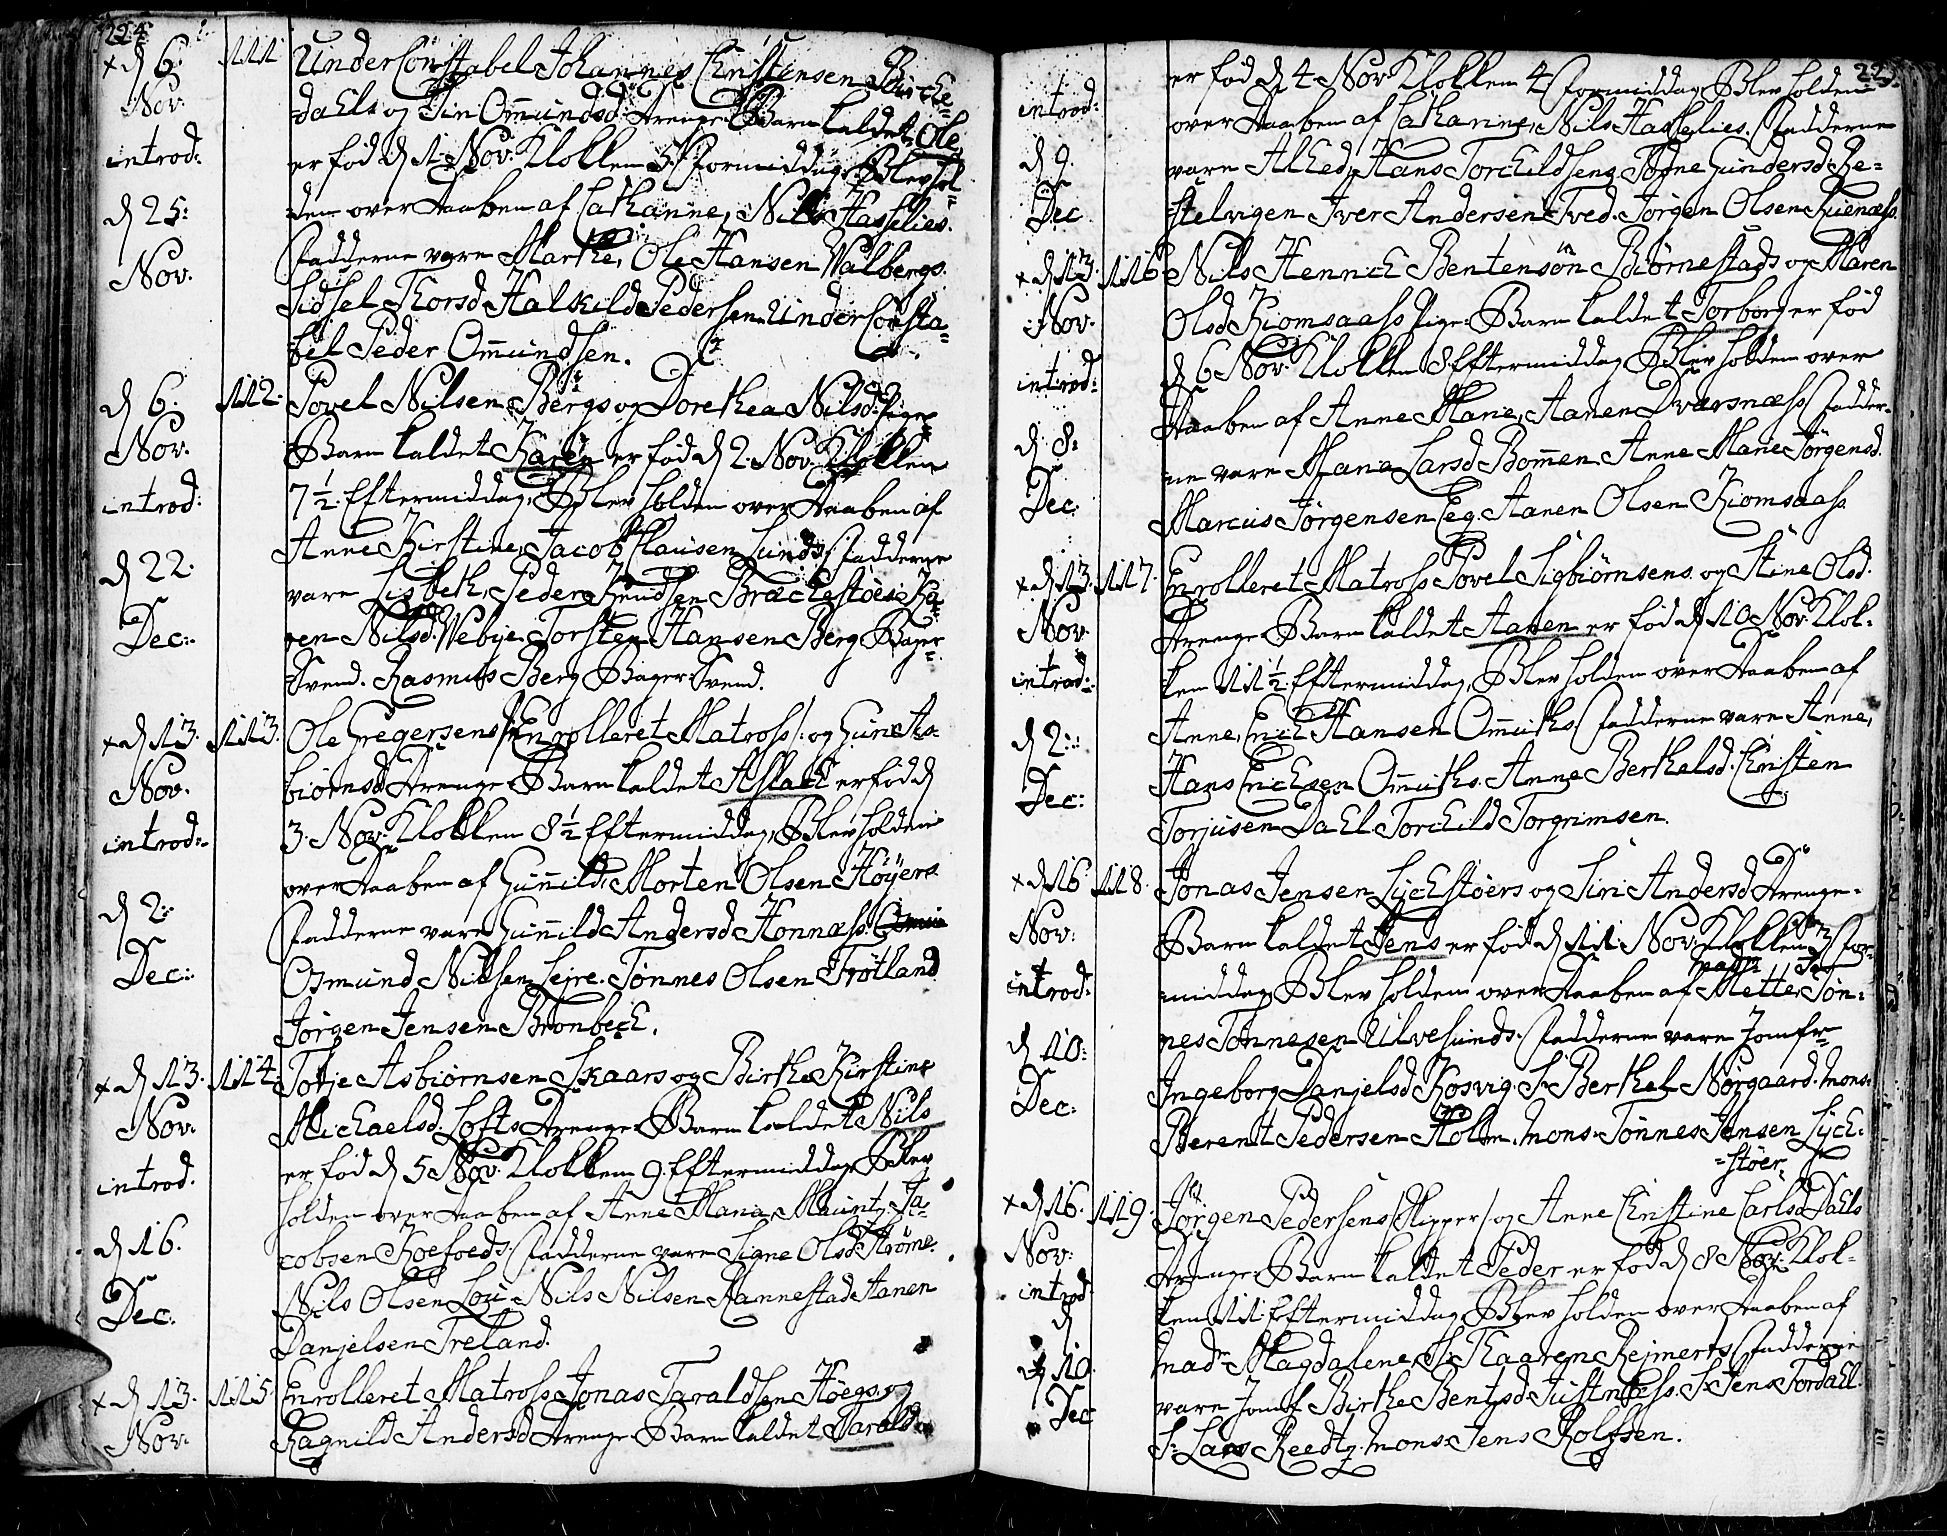 224.
× d 6. Nov. introd: d 25: Nov.
111. UnderConstabel Johannes Christensen Birche-
dahls og Siri Ommundsd. Drenge-Barn kaldet Ole
er fød d 1 Nov. Klokken 5 Formiddag. Blev hol-
den over Daaben af Catharine, Nils Hasselies.
Fadderne vare Marthe, Ole Hansen Walbergs.
Sidsel Thorsd. Halkild Pedersen. UnderConsta-
bel Peder Ommundsen.
d 6. Nov. introd: d 22. Dec:
112. Povel Nilsen Bergs og Dorethea Nilsd. Pige-
Barn kaldet Karen er fød d 2. Nov. Klokken
7½ Eftermiddag. Blev holden over Daaben af
Anne Kirstine, Jacob Clausen Lunds. Fadderne
vare Lisbeth, Peder Knudsen Brækkestøes. Ka-
ren Nilsd. Webye. Torsten Hansen Berg Bager-
Svend. Rasmus Berg Bager-Svend.
× d 13. Nov. introd: d 2: Dec:
113. Ole Gregersens /: Enrolleret Matross :/ og Gune As-
biørnsd Drenge-Barn kaldet Aslack er fød d
3. Nov. Klokken 8½ Eftermiddag, Blev holden
over Daaben af Gunnild, Morten Olsen Høyers.
Fadderne vare Gunnild Andersd Honnæss.
Osmund Nilsen Lejre. Tønnes Olsen Trøtland
Jørgen Jensen Bronbech.
× d 13. Nov. introd. d 16. Dec.
114. Totje Asbiørnsen Skaars og Birthe Kirstine
Michaelsd. Lofts Drenge-Barn kaldet Nils
er fød d 5 Nov. Klokken 9. Eftermiddag Blev
holden over Daaben af Anne Maria, Mauritz Ja-
cobsen Koefoeds. Fadderne vare Signe Olsd. Strøme.
Nils Olsen Lou. Nils Nilsen Rannestad. Aanen
Danjelsen Treland.
× d 13. Nov.
115. Enrolleret Matross Jonas Taraldsen Høegs og
Ragnild Andersd Drenge-Barn kaldet Tarald
225.
introd: d 9. Dec
er fød d 4 Nov. Klokken 4 Formiddag. Blev holden
over Daaben af Catharine, Nils Hasselies. Fadderne
vare Alhed, Hans Torchildsens. Togne Gundersd Re-
stelvigen. Iver Andersen Tved. Jørgen Olsen Kuenæss.
× d 13. Nov. introd: d 8: Dec:
116. Nils Henrich Bentensøn Biørnestads og Maren
Olsd. Kiomsaass Pige-Barn kaldet Torborg er fød
d 6 Nov. Klokken 8 Eftermiddag Blev holden over
Daaben af Anne Marie, Aanen Dværsnæss. Fadder-
ne vare Maria Larsd Bommen. Anne Marie Jørgensd.
Marcus Jørgensen Eeg. Aanen Olsen Kiomsaass.
× d 13. Nov. introd: d 2: Dec:
117. Enrolleret Matross Povel Sigbiørnsens. og Stine Olsd.
Drenge-Barn kaldet Aanen er fød d 10 Nov. Klok-
ken 11½ Eftermiddag, Blev holden over Daaben af
Anne, Erich Hansen Ommuths. Fadderne vare Anne,
Hans Erichsen Ommuths. Anne Berthelsd. Christen
Torjusen Dahl. Torchild Torgrimsen.
× d 16 Nov: introd: d 10: Dec:
118. Jonas Jensen Lychstøers og Siri Andersd Drenge-
Barn kaldet Jens er fød d 11 Nov. Klokken 3 For-
middag Blev holden over Daaben af madm Mette, Tøn-
nes Tønnesen Ulvesunds. Fadderne vare Jomfr
Ingeborg Danjelsd Kosvig. Sr Berthel Nørgaard. Mons.
Berent Pedersen Holm. Mons. Tønnes Jensen Lych-
støer.
× d 16. Nov: introd. d 10. Dec
119. Jørgen Pedersens /Skipper/ og Anne Christine Carlsd Dahls
Drenge-Barn kaldet Peder er fød d 8 Nov. Klok-
ken 11 Eftermiddag. Blev holden over Daaben af
madm Magdalene, Sr Kaaren Rejmerts. Fadderne
vare Jomf. Birthe Bentsd Justnæss. Sr Jens Fordahl.
Sr Lars Reedtz. Mons. Jens Rolfsen.